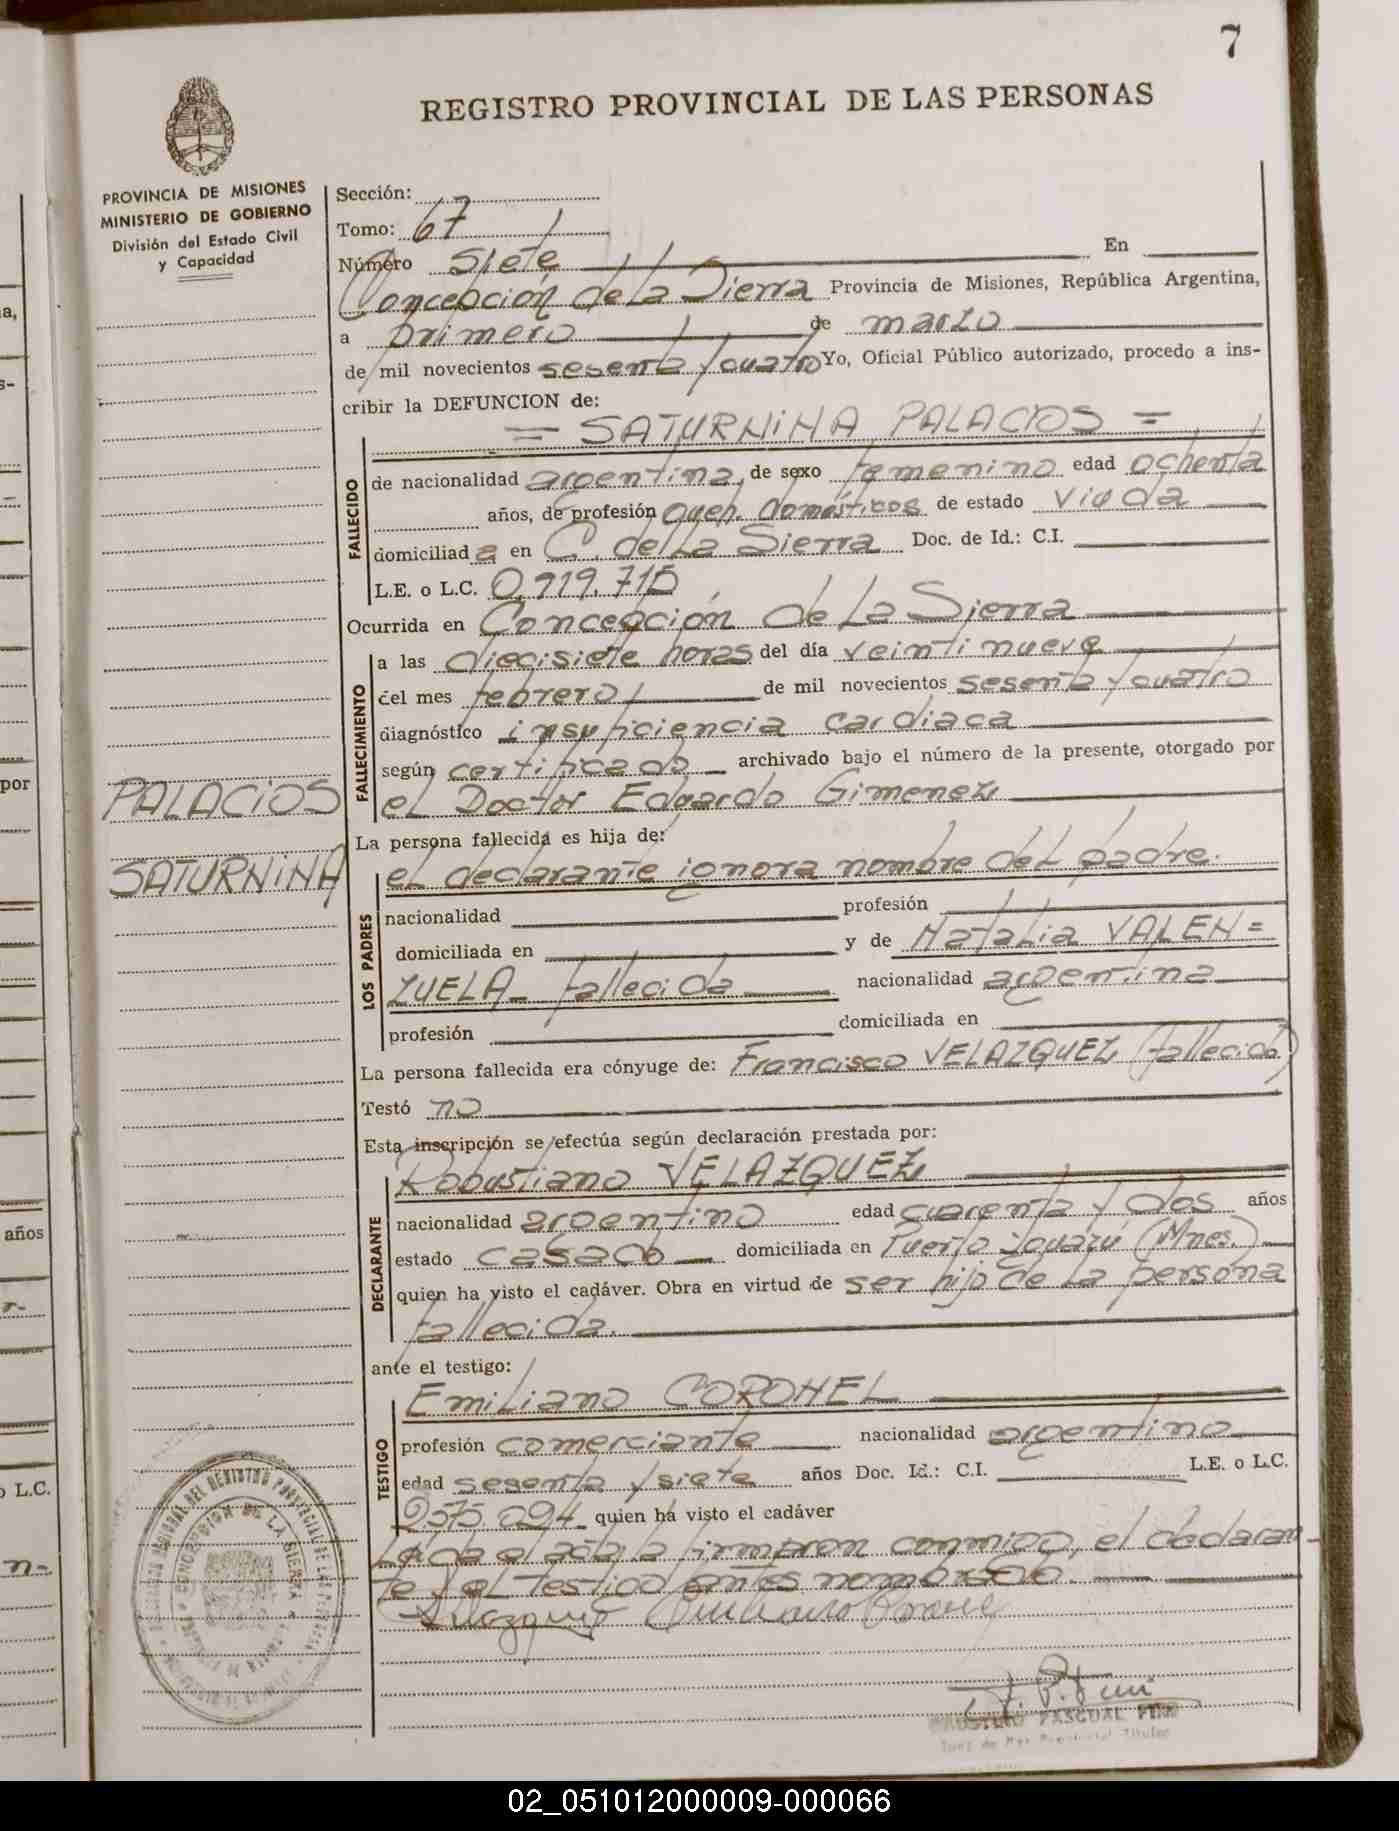 7
REGISTRO PROVINCIAL DE LAS PERSONAS
PROVINCIA DE MISIONES
MINISTERIO DE GOBIERNO
División del Estado Civil
y Capacidad
PALACIOS
SATURNINA
Sección:
Tomo: 67
Número Siete En
Concepción de la Sierra Provincia de Misiones, República Argentina,
a primero de marzo
de mil novecientos sesenta y cuatro Yo, Oficial Público autorizado, procedo a ins-
cribir la DEFUNCION de:
= SATURNINA PALACIOS =
FALLECIDO
de nacionalidad argentina, de sexo femenino edad ochenta
años, de profesión queh. domésticos de estado viuda
domiciliada en C. de La Sierra Doc. de Id.: C.I.
L.E. o L.C. 0.919.715
Ocurrida en Concepción de La Sierra
FALLECIMIENTO
a las diecisiete horas del día veintinueve
del mes febrero de mil novecientos sesenta y cuatro
diagnóstico insuficiencia cardiaca
según certificado archivado bajo el número de la presente, otorgado por
el Doctor Eduardo Gimenez
La persona fallecida es hija de:
LOS PADRES
el declarante ignora nombre del padre.
nacionalidad profesión
domiciliada en y de Natalia VALEN=
ZUELA - fallecida nacionalidad argentina
profesión domiciliada en
La persona fallecida era cónyuge de: Francisco VELAZQUEZ (fallecido)
Testó no
Esta inscripción se efectúa según declaración prestada por:
DECLARANTE
Robustiano VELAZQUEZ
nacionalidad argentino edad cuarenta y dos años
estado casado domiciliada en Puerto Iguazú (Mnes.)
quien ha visto el cadáver. Obra en virtud de ser hijo de la persona
fallecida.
ante el testigo:
TESTIGO
Emiliano CORONEL
profesión comerciante nacionalidad argentino
edad sesenta y siete años Doc. Id.: C.I. L.E. o L.C.
2575.094 quien ha visto el cadáver
Leída el acta la firmaron conmigo, el declaran-
te y el testigo antes nombrado.
Velazquez Emiliano Coronel
FAUSTINO PASCUAL
02_051012000009-000066